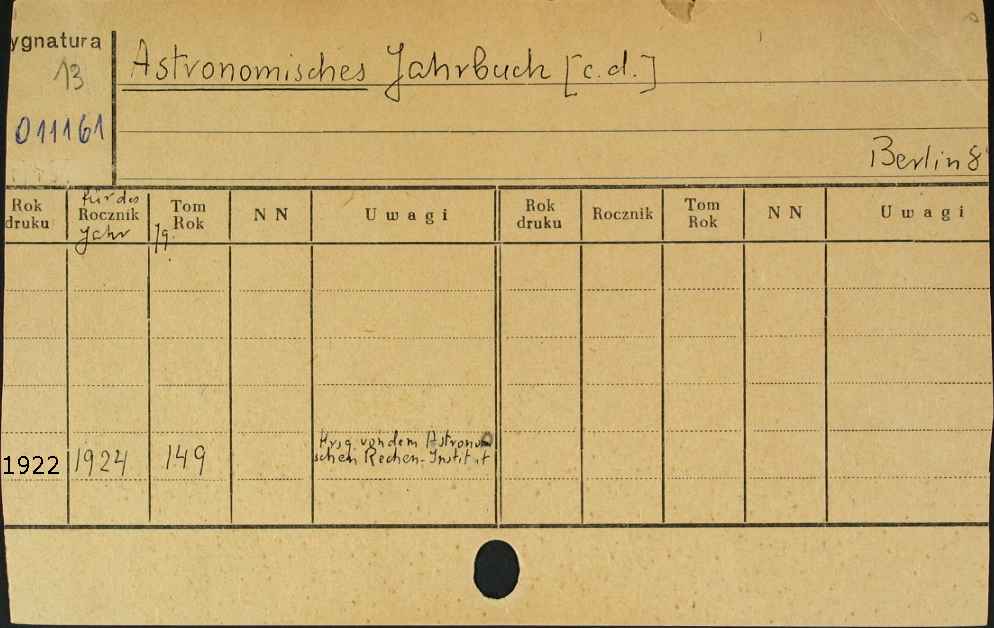 ygnatura
13
011161
Astronomisches Jahrbuch [c.d.]
Berlin 8°
für des
Jahr
Jg.
Rok druku Rocznik Tom Rok N N U w a g i Rok druku Rocznik Tom Rok N N U w a g i
1922 1924 149 Hrsg. von dem Astronomi
schen Rechen-Institut